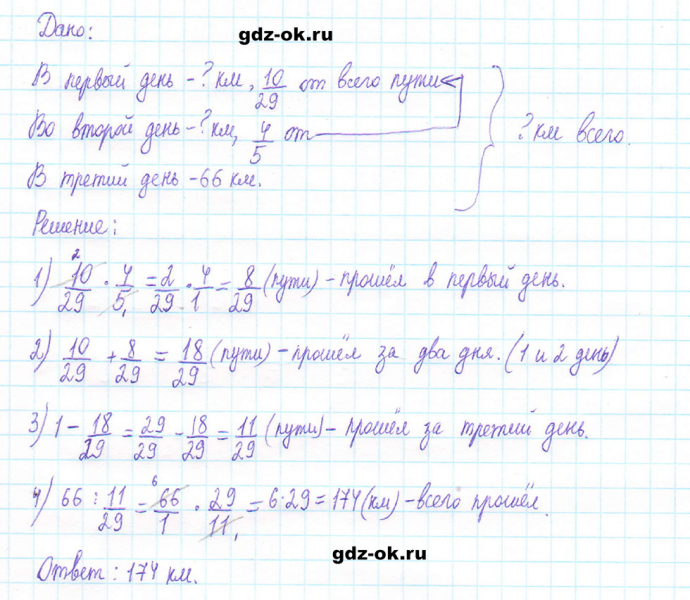 Дано:
gdz-ok.ru
В первый день - ? км, 10/29 от всего пути
Во второй день - ? км, 4/5 от
? км всего.
В третий день - 66 км.
Решение:
1) 10/29 · 4/5 = 2/29 · 4/1 = 8/29 (пути) - прошёл в первый день.
2) 10/29 + 8/29 = 18/29 (пути) - прошёл за два дня. (1 и 2 день)
3) 1 - 18/29 = 29/29 - 18/29 = 11/29 (пути) - прошёл за третий день.
4) 66 : 11/29 = 66/1 · 29/11 = 6·29 = 174 (км) - всего прошёл.
gdz-ok.ru
Ответ: 174 км.